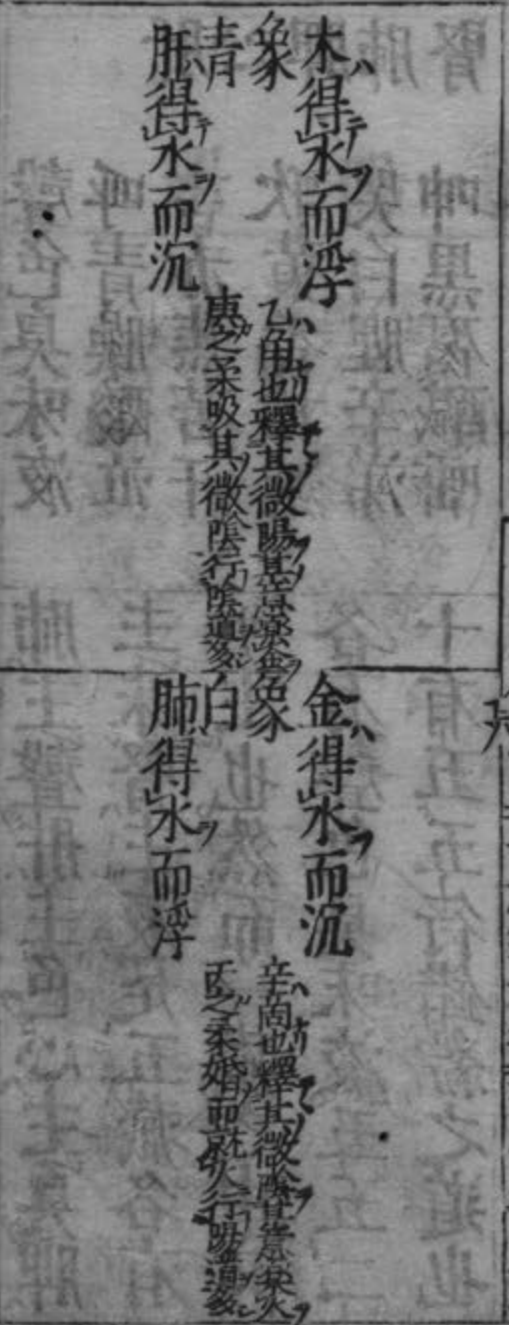 木得水而浮
象
青
肝得水而沉
乙角也釋其微陽其意樂金
庚之柔吸其微陰行陰道多
金得水而沉
象
白
肺得水而浮
辛商也釋其微陰其意樂火
丙之柔婚而就火行陽道多